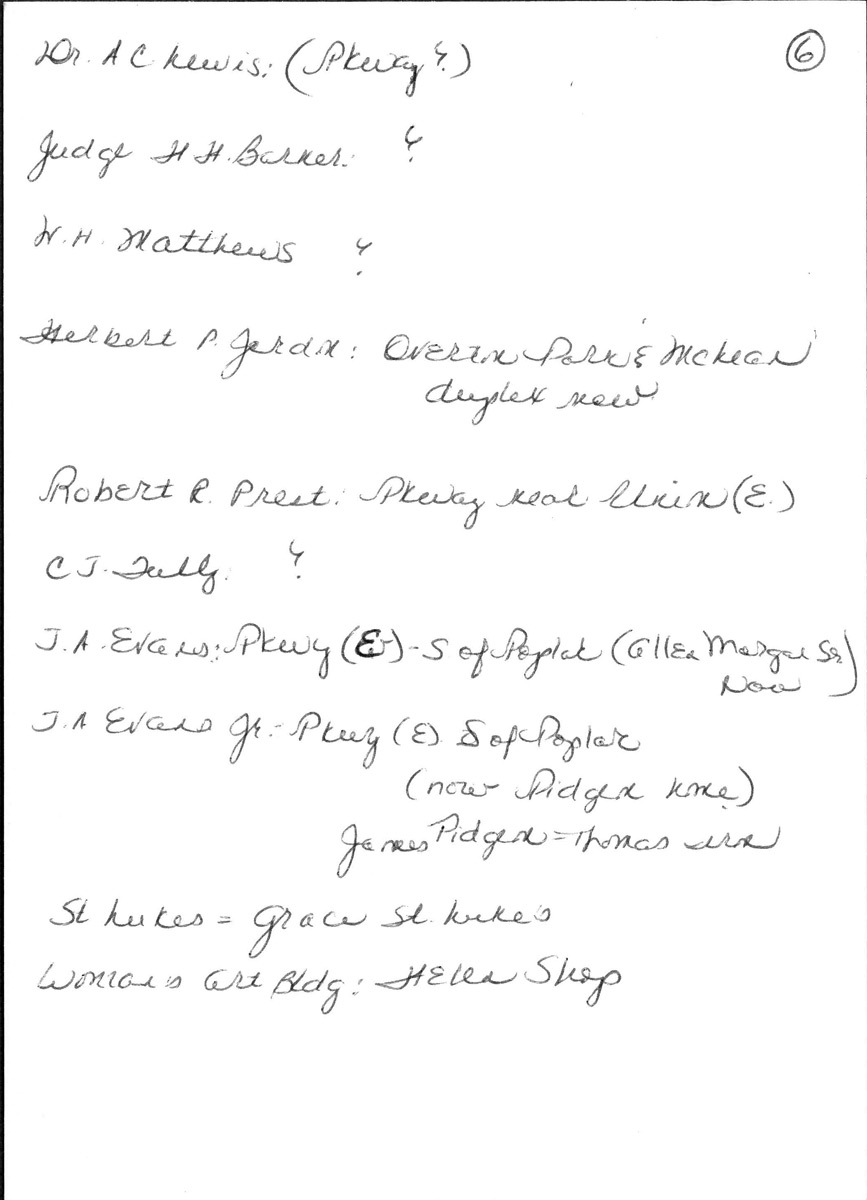 Dr. A C Lewis: (Pkway ?) 6
Judge H H. Barker: ?
W. H. Matthews ?
Herbert P. Jordon: Overton Park & McLean
duplex now
Robert R. Prest: Pkway near Union (E.)
C J. Tully: ?
J. A. Evans: Pkwy (E) - S of Poplar (Allen Morgan Sr.)
Now
J. A Evans Jr. - Pkwy (E) S of Poplar
(now Pidgeon home)
James Pidgeon = Thomas son
St Lukes = Grace St. Luke's
Woman's Art Bldg: Helen Shop